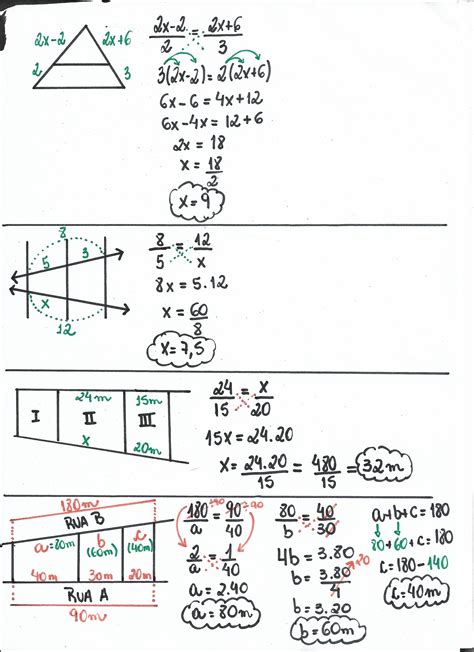 2x-2 2x+6
2 3
2x-2/2 = 2x+6/3
3(2x-2) = 2(2x+6)
6x-6 = 4x+12
6x-4x = 12+6
2x = 18
x = 18/2
x = 9
8
5 3
x
12
8/5 = 12/x
8x = 5.12
x = 60/8
x = 7,5
24m 15m
I II III
x 20m
24/15 = x/20
15x = 24.20
x = 24.20/15 = 480/15 = 32m
180m
RUA B
a=80m b (60m) c (40m)
40m 30m 20m
RUA A
90m
180/a = 90/40
2/a = 1/40
a = 2.40
a = 80m
80/b = 40/30
4b = 3.80
b = 3.80/4 20
b = 3.20
b = 60m
a+b+c = 180
80+60+c = 180
c = 180-140
c = 40m